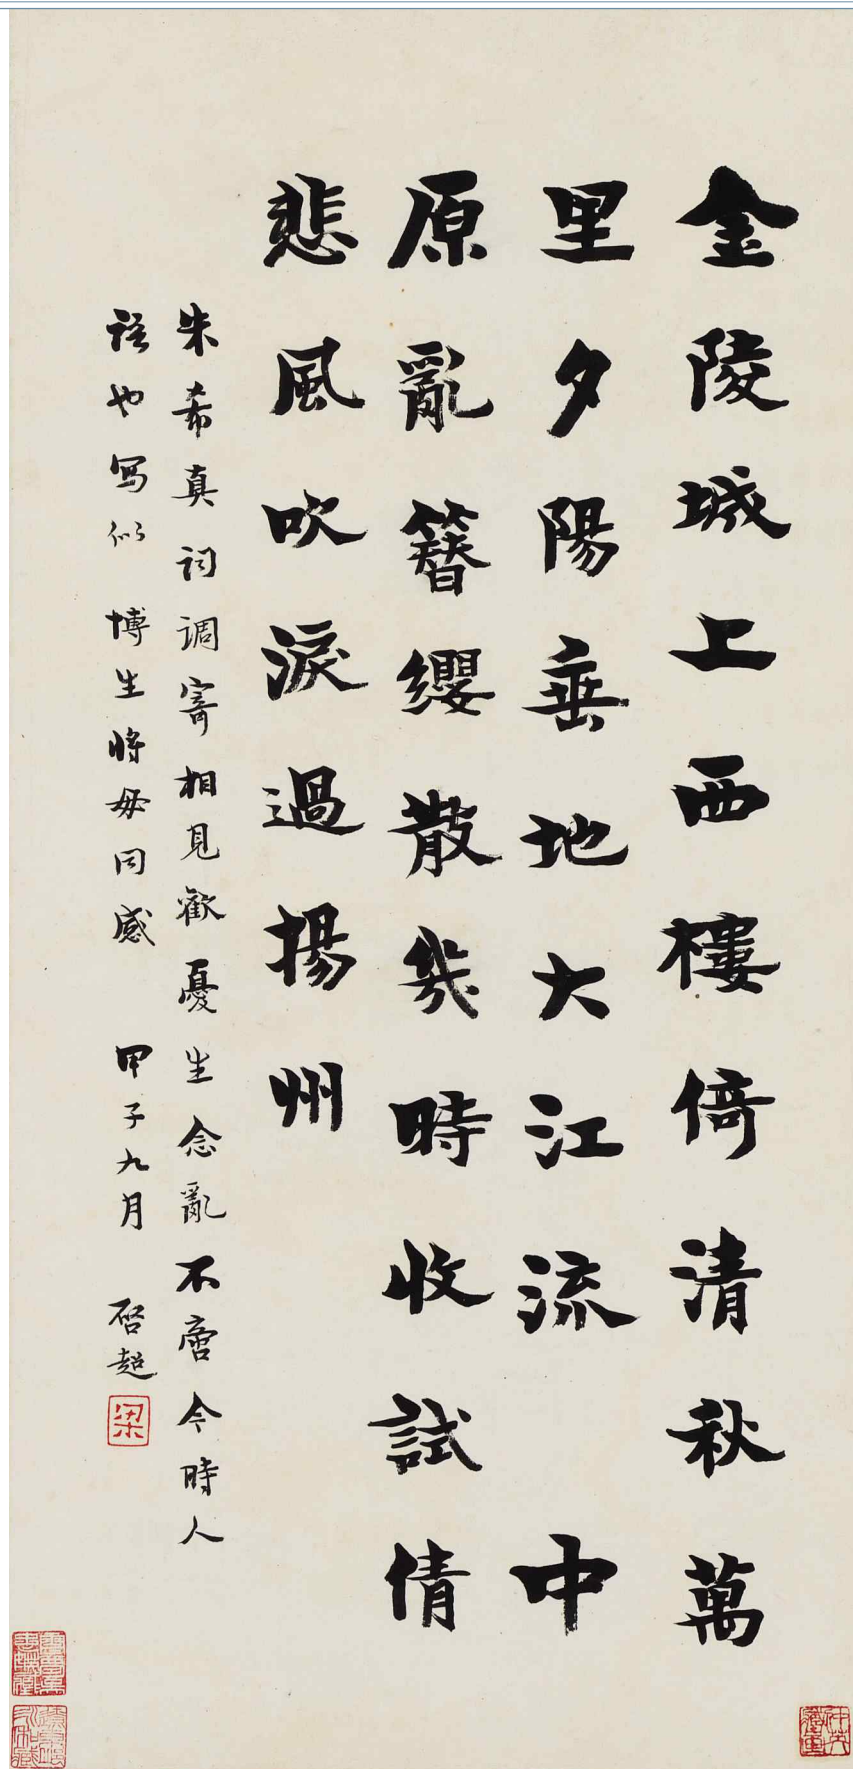 金陵城上西樓倚清秋萬
里夕陽垂地大江流中
原亂簪纓散幾時收試倩
悲風吹淚過揚州
朱希真詞調寄相見歡憂生念亂不啻今時人
語也写似博生將毋同感 甲子九月 啓超
梁